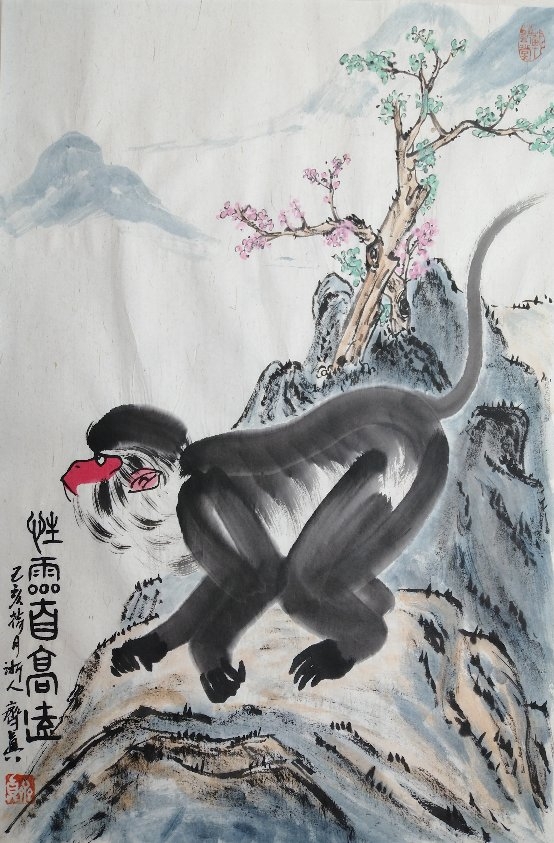 性靈自高遠
己亥荷月浙人齊真